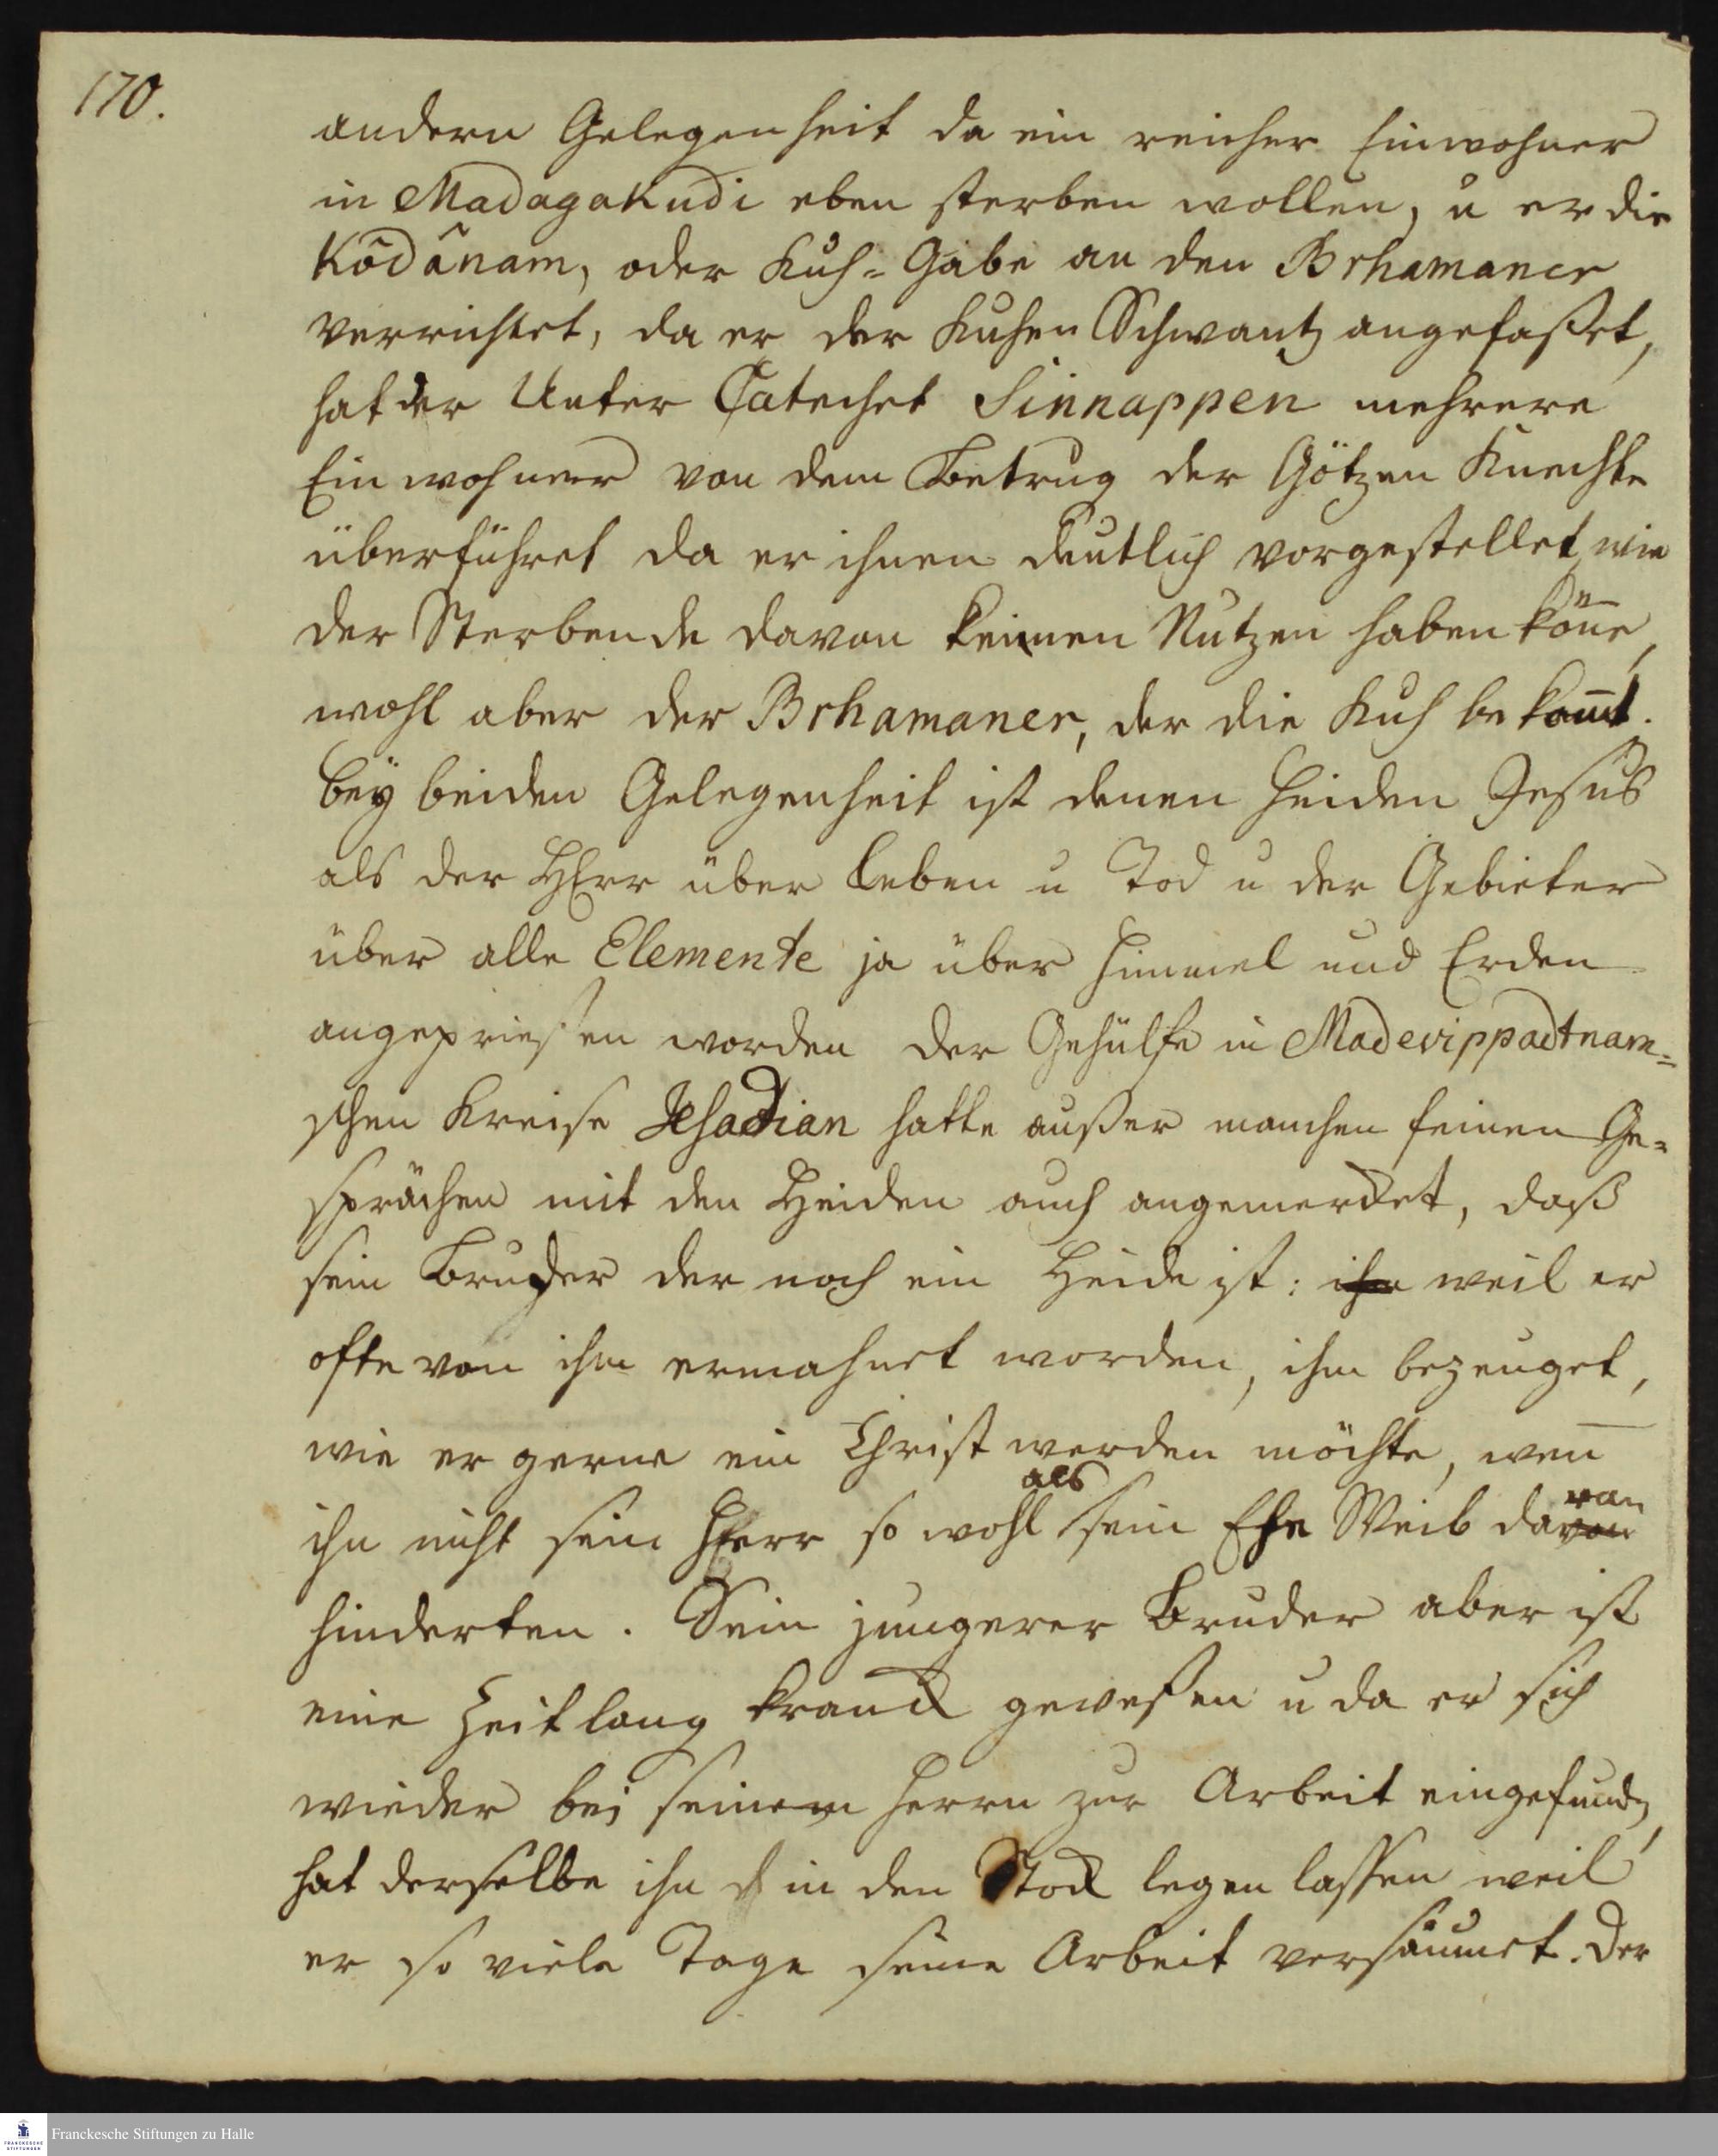 170.
andern Gelegenheit da ein reicher Einwohner
in Madagakudi eben sterben wollen, u er die
Kôdânam, oder Kuh-Gabe an den Brhamaner
verrichtet, da er der Kuhen Schwantz angefaßet,
hat der Unter Catechet Sinnappen mehrere
Einwohner von dem Betrug der Götzen Knechte
überführet da er ihnen deutlich vorgestellet, wie
der Sterbende davon keinen Nutzen haben könne,
wohl aber der Brhamaner, der die Kuh bekomt.
bey beiden Gelegenheit ist denen Heiden Jesus
als der HErr über Leben u Tod u der Gebieter
über alle Elemente ja über Himmel und Erden
angepriesen worden der Gehülfe in Madevippadtnam=
schen Kreise Jesadian hatte außer manchen feinen Ge=
sprächen mit den Heiden auch angemercket, daß
sein Bruder der noch ein Heide ist: ihn weil er
ofte von ihm ermahnet worden, ihm bezeuget,
wie er gerne ein Christ werden möchte, wen̅
ihn nicht sein HErr so wohl als sein Ehe Weib davon
ran
hinderten. Sein jungerer Bruder aber ist
eine Zeitlang kranck gewesen u da er sich
wieder bei seinem Herrn zur Arbeit eingefunden,
hat derselbe ihn in den Stock legen lassen weil
er so viele Tage seine Arbeit versäumet. Der
Franckesche Stiftungen zu Halle
FRANCKESCHE
STIFTUNGEN